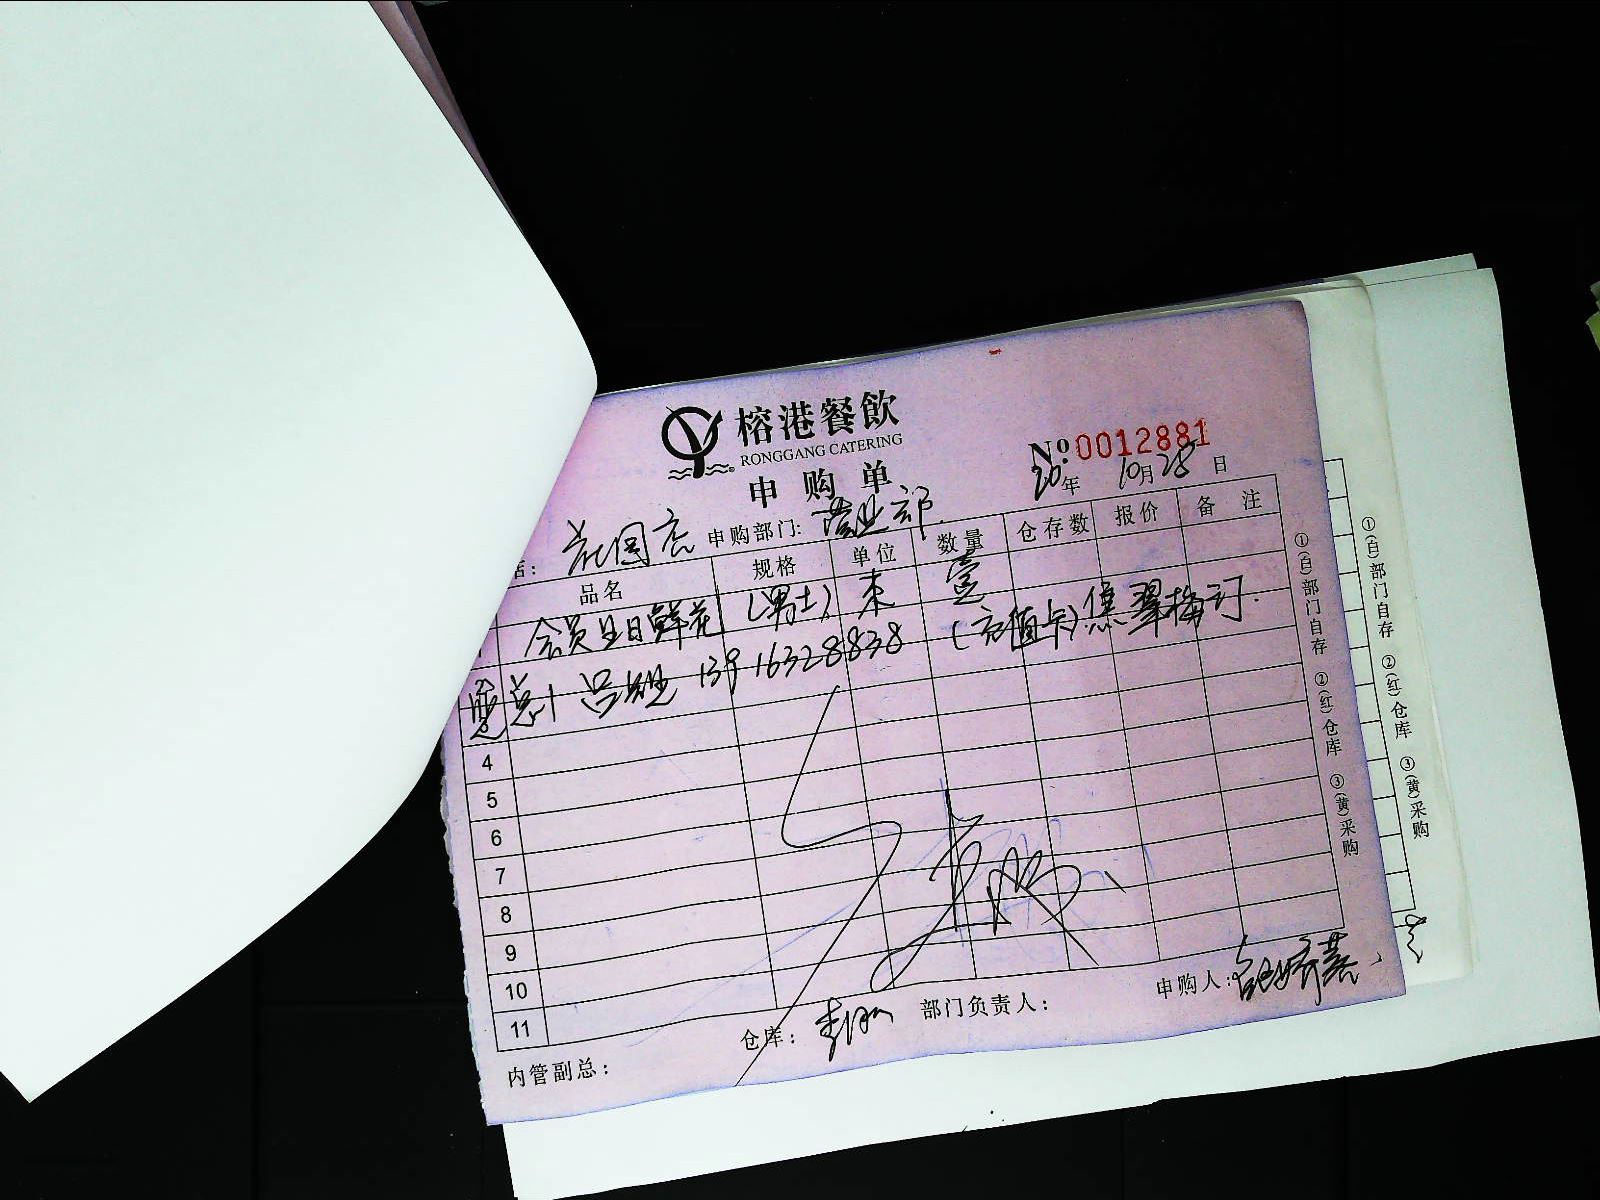 榕港餐飲
RONGGANG CATERING
申购单
№ 0012881
20年 10月 28日
店: 花园店 申购部门: 营业部
品名 规格 单位 数量 仓存数 报价 备注
会员生日鲜花 (男士) 束 壹
总 吕 13916328838 (充值卡) 焦翠梅订.
4
5
6
7
8
9
10
11
内管副总: 仓库: 部门负责人: 申购人:
①(白)部门自存 ②(红)仓库 ③(黄)采购
①(白)部门自存 ②(红)仓库 ③(黄)采购